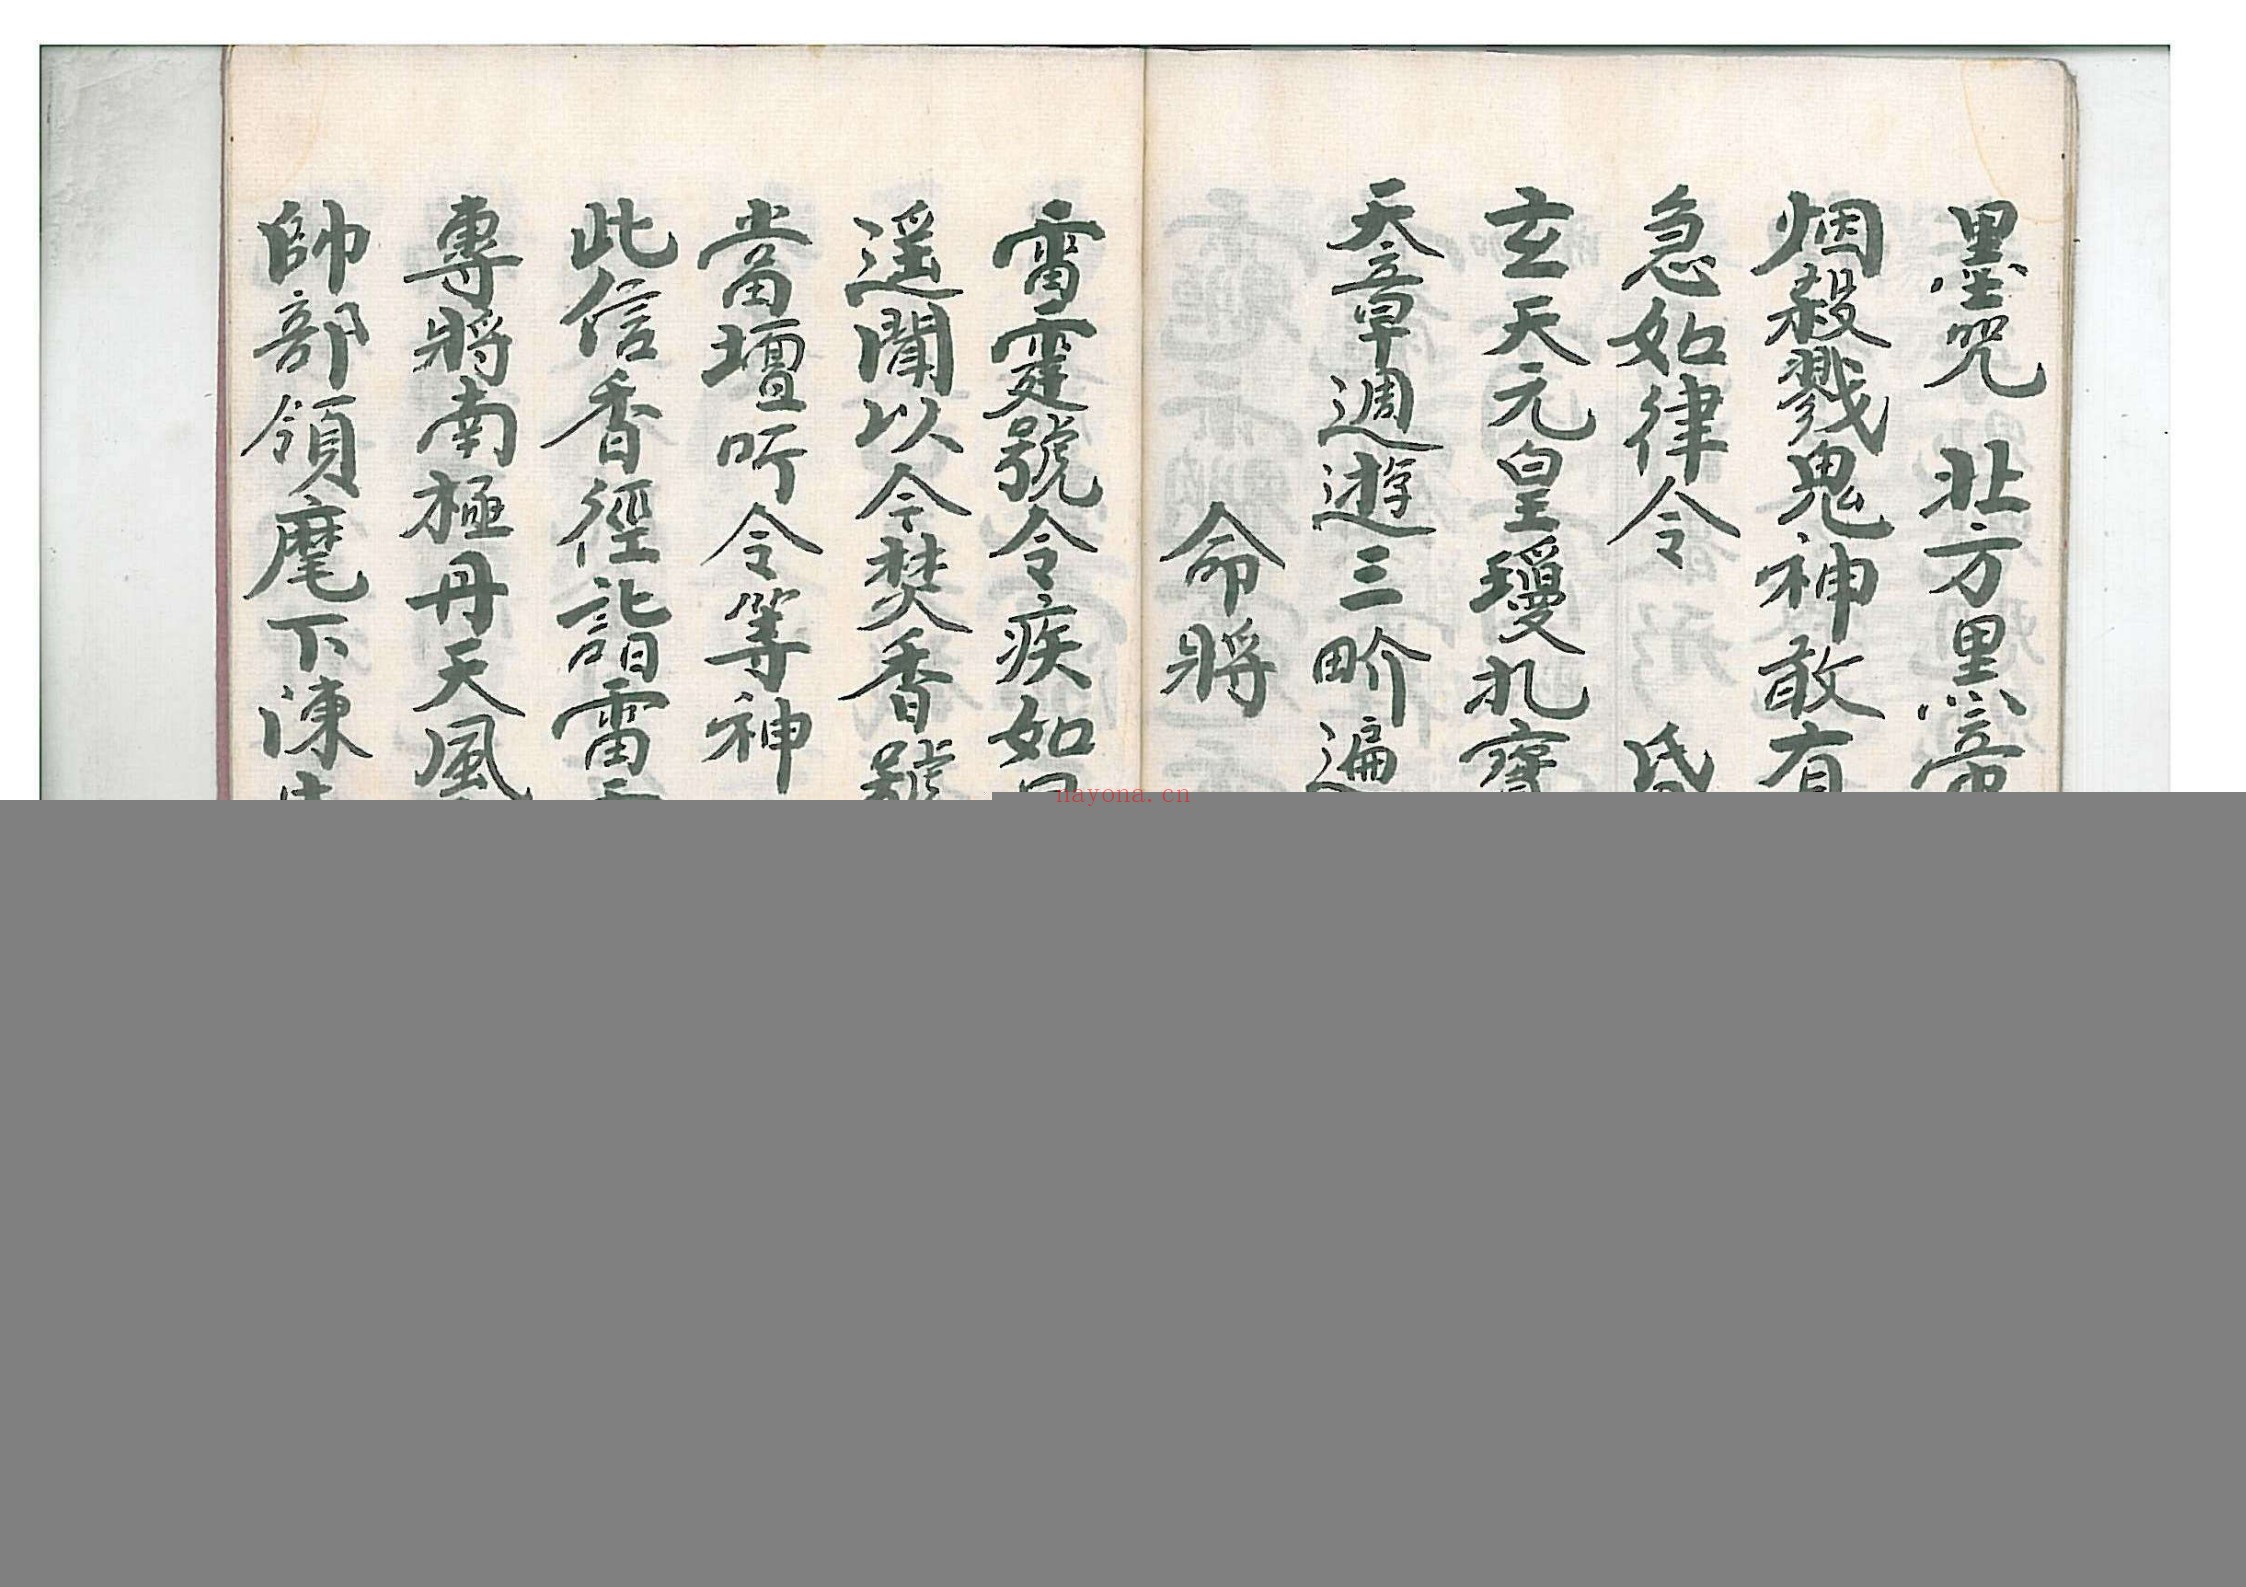 墨咒 北方黑帝
烟殺戮鬼神敢有
急如律令
玄天元皇瓊札
天章週遊三界遍
命將
雷霆號令疾如
遥聞以今焚香號
當壇听令等神
此信香徑詣雷
專將南極丹天風
帥部領麾下
nayona.cn